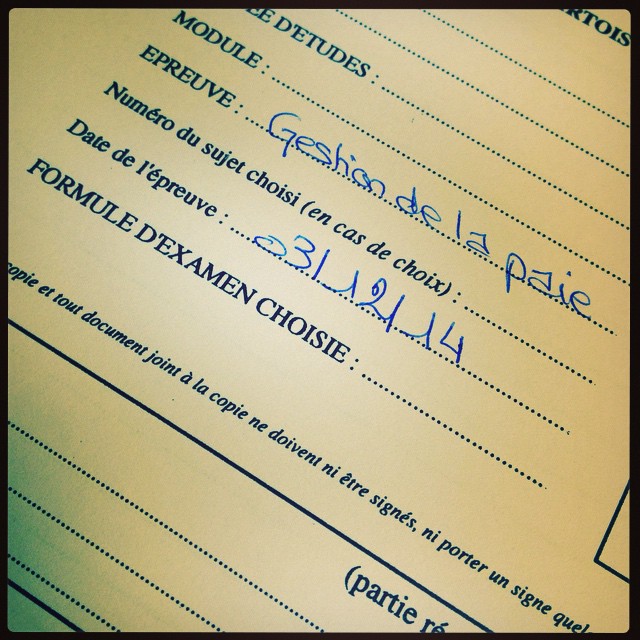 RTOIS
E D'ETUDES :
MODULE :
EPREUVE : Gestion de la paie
Numéro du sujet choisi (en cas de choix) :
Date de l'épreuve : 03/12/14
FORMULE D'EXAMEN CHOISIE :
copie et tout document joint à la copie ne doivent ni être signés, ni porter un signe quel
(partie ré